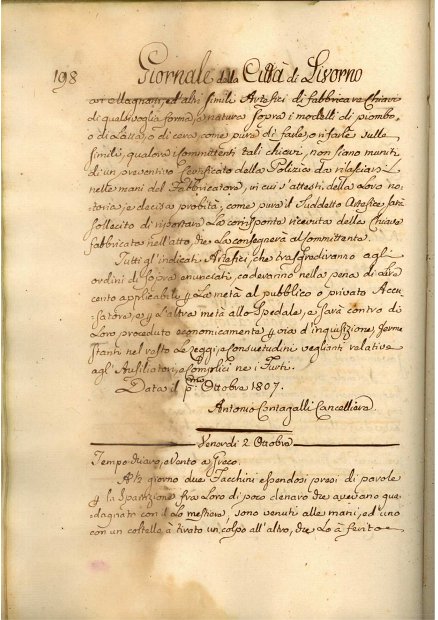 198 Giornale della Città di Livorno
ari Magnani, ed altri simili Artefici di fabbricare Chiavi
di qualsivoglia forma, o natura sopra i modelli di piombo
o di Latta, o di cera come pure di farle, o rifarle sulle
simili, qualora i committenti tali chiavi, non siano muniti
di un preventivo Certificato della Polizia da rilasciarsi
nelle mani del Fabbricatore, in cui s'attesti della Loro no-
toria, e decisa probità, come pure il suddetto Artefice sarà
sollecito di riportare La corrisponte ricevuta della Chiave
fabbricata nell'atto, che La consegnerà al committente.
Tutti gl'indicati Artefici, che trasgradiranno agl'
ordini di sopra enunciati, caderanno nella pena di
cento applicabile La metà al pubblico o privato Accu-
satore, e L'altra metà allo Spedale, e sarà contro di
Loro proceduto economicamente via d'inquisizione, ferme
stanti nel resto Le Leggi, e Consuetudini veglianti relative
agl'Ausiliatori, e Complici ne i Furti.
Data il p.mo Ottobre 1807.
Antonio Contagalli Cancelliere.
Venerdi 2 Ottobre
Tempo chiaro, e Vento a Greco.
A giorno due Facchini essendosi presi di parole
la Spartizione fra Loro di poco denaro che avevano gua-
dagnato con il Lo mestiere, sono venuti alle mani, ed uno
con un coltello à tirato un colpo all'altro, che Lo à ferito e